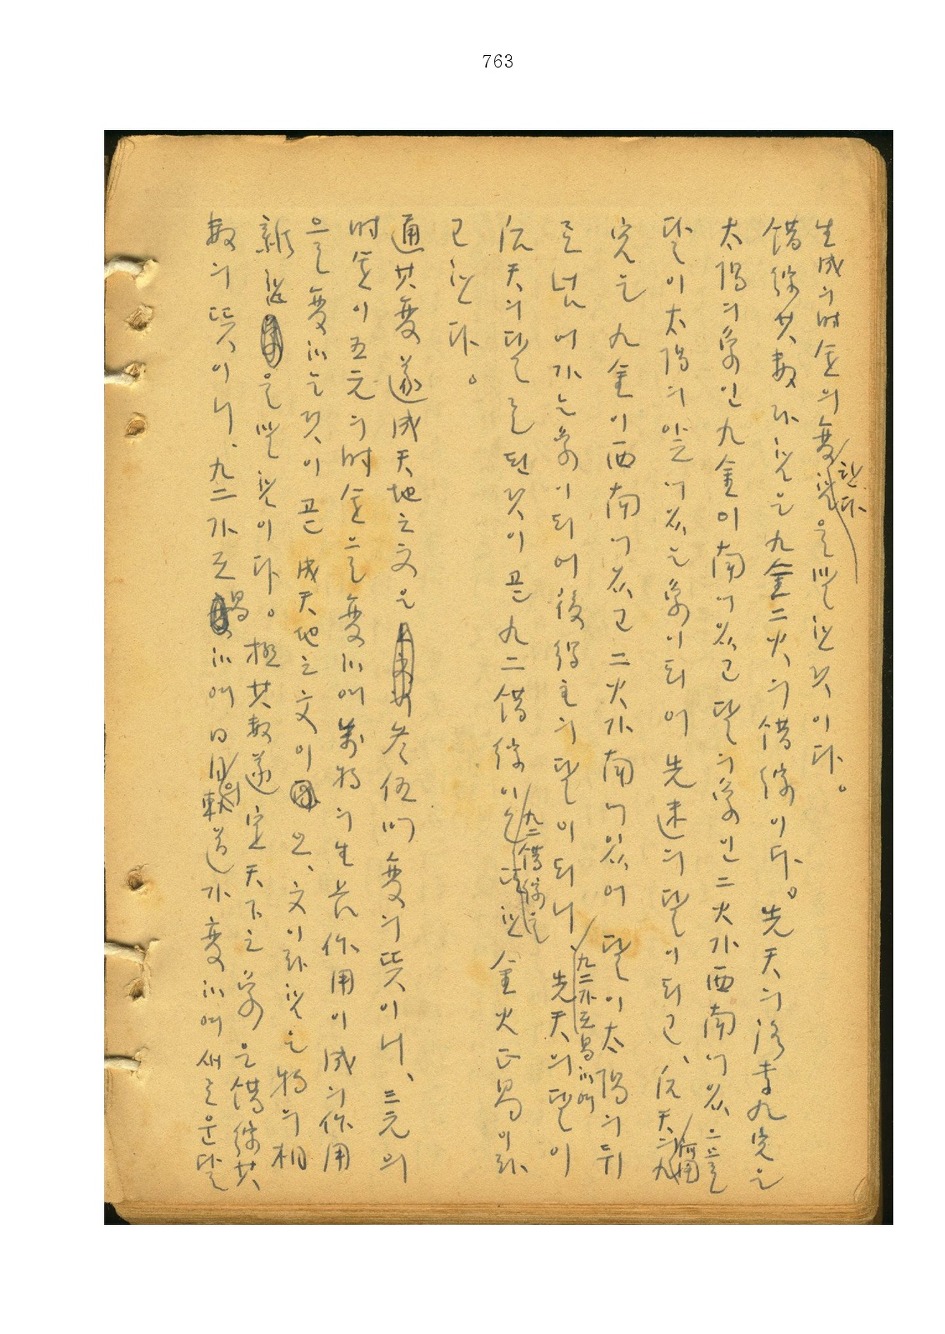 763
生成의 时金의 變說을 말한 것이다。
錯綜其數라 함은 九金二火의 錯綜이다。先天의 洛書九宮은
太陽의 象인 九金이 南에 있고 달의 象인 二火가 西南에 있으므로
달이 太陽의 앞에 있는 象이 되어 先迷의 달이 되고、后天의 九
宮은 九金이 西南에 있고 二火가 南에 있어 달이 太陽의 뒤
로 넘어가는 象이 되어 後得主의 달이 되니、九二가 互易하여 先天의 달이
后天의 달로 된 것이 곧 九二錯綜이 金火正易이라
고 한다。
通其變遂成天地之文은 參伍以變의 뜻이니、三元의
时金이 五元의 时金으로 變하여 萬物의 生長作用이 成의 作用
으로 變하는 것이 곧 成天地之文이오、文이라 함은 物의 相
을 말함이다。極其數遂定天下之象은 錯綜其
數의 뜻이니、九二가 互易하여 日月의 軌道가 變하여 새로운 달